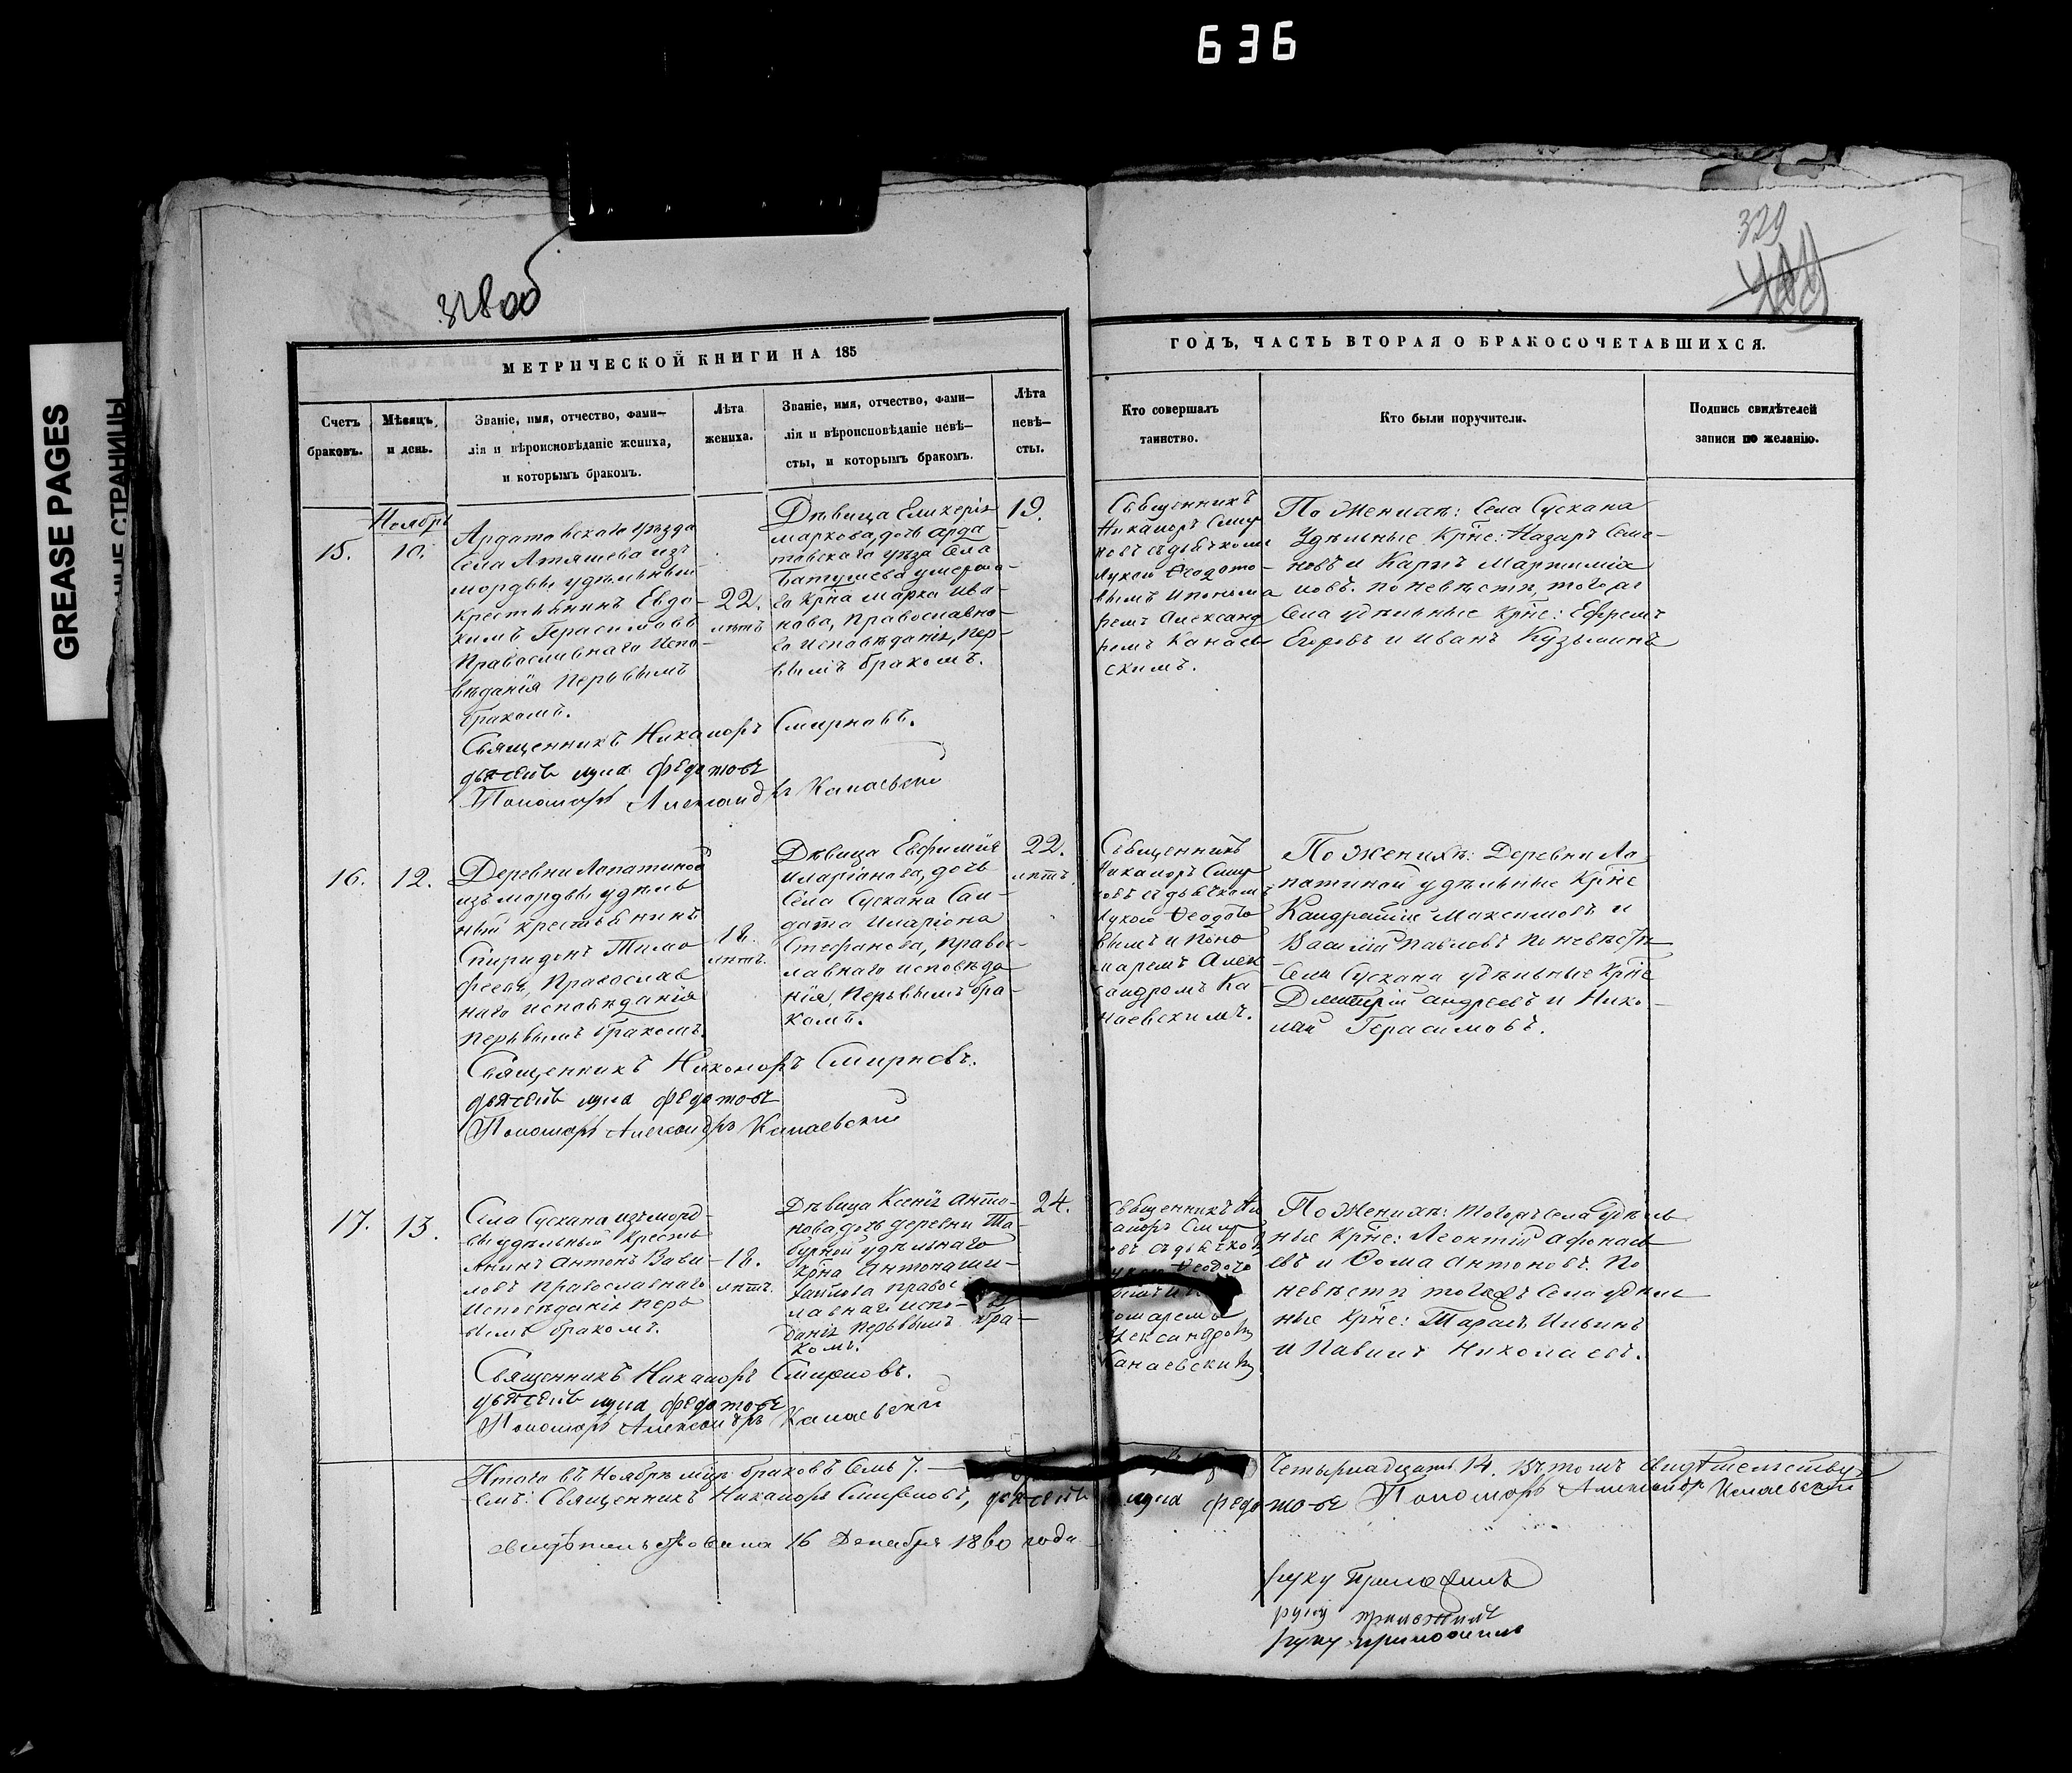 636
GREASE PAGES
СТРАНИЦЫ
318об
329
МЕТРИЧЕСКОЙ КНИГИ НА 185
Счетъ браковъ.
Мѣсяцъ и день.
Званіе, имя, отчество, фами-
лія и вѣроисповѣданіе жениха,
и которымъ бракомъ.
Лѣта
жениха.
Званіе, имя, отчество, фами-
лія и вѣроисповѣданіе невѣ-
сты, и которымъ бракомъ.
Лѣта
невѣ-
сты.
ГОДЪ, ЧАСТЬ ВТОРАЯ О БРАКОСОЧЕТАВШИХСЯ.
Кто совершалъ
таинство.
Кто были поручители.
Подпись свидѣтелей
записи по желанію.
15.
Ноябрь
10.
Ардатовскаго уѣзда
Села Атяшева изъ
мордвы удѣльный
крестьянинъ Евдо-
кимъ Герасимовъ
Православнаго Испо-
вѣданія Первымъ
бракомъ.
22.
лѣтъ
Дѣвица Гликерія
Маркова, дочь арда
товскаго уѣзда Села
Батушева умерша-
го Крна Марка Ива-
нова, Православна-
го Исповѣданія, пер-
вымъ бракомъ.
19.
Священникъ
Никаноръ Смир
новъ съ дьячкомъ
Лукою Ѳеодото-
вымъ и понома
ремъ Александ
ромъ Канаев
скимъ.
По Женихѣ: Села Сускана
Удѣльные Крне: Назаръ Семе-
новъ и Карпъ Мартиміа
новъ. по невѣсти, тогоже
Села удѣльные Крне: Ефремъ
Егоровъ и Иванъ Кузьминъ
Священникъ Никаноръ Смирновъ.
дьячекъ лука федотовъ
Пономарь Александръ Канаевский
16.
12.
Деревни Лопатиной
изъ мордвы удѣль
ный крестьянинъ
Спиридонъ Тимо
феевъ, Православ
наго исповѣданія
Первымъ бракомъ.
18.
лѣтъ.
Дѣвица Евфимія
Иларіонова, дочь
Села Сускана Сол-
дата Иларіона
Стефанова, Правос-
лавнаго исповѣда
нія, Первымъ бра-
комъ.
22.
лѣтъ.
Священникъ
Никаноръ Смир
новъ съ дьячкомъ
Лукою Ѳеодото
вымъ и поно
маремъ Алек
сандромъ Ка-
наевскимъ.
По Женихѣ: Деревни Ло
патиной удѣльные Крне
Кондратій Максимовъ и
Василій Павловъ по невѣсти
Села Сускана удѣльные Крне
Дмитрій андреевъ и Нико-
лай Герасимовъ.
Священникъ Никаноръ Смирновъ.
дьячекъ лука федотовъ
Пономарь Александръ Канаевский
17.
13.
Села Сускана изъ морд-
вы удѣльный Кресть
янинъ Антонъ Вави-
ловъ Православнаго
Исповѣданія Пер
вымъ бракомъ.
18.
лѣтъ.
Дѣвица Ксенія Анто-
нова дочь деревни Та-
бурной удѣльнаго
Крна Антона Ми-
хайлова Правос
лавнаго испо-
данія Первымъ бра-
комъ.
24.
Священникъ Ни
каноръ Смир
новъ съ дьячком
Лукою Ѳеодото
вымъ и По
номаремъ
Александром
Канаевским
По Женихѣ: тогожъ Села удѣль
ные Крне: Леонтій Афонась
евъ и Ѳома Антоновъ. По
невѣсти тогожъ Села удѣль
ные Крне: Тарасъ Ильинъ
и Павилъ Николаевъ.
Священникъ Никаноръ Смирновъ.
дьячекъ лука федотовъ
Пономарь Александръ Канаевский
Итого въ Ноябрѣ мцѣ браковъ Семь 7. Четырнадцать 14. Въ томъ свидѣтельству
емъ: Священникъ Никаноръ Смирновъ, дьячекъ лука федотовъ Пономарь Александръ Канаевский
свидѣтельствована 16 Декабря 1860 года
руку приложилъ
руку приложилъ
руку приложилъ